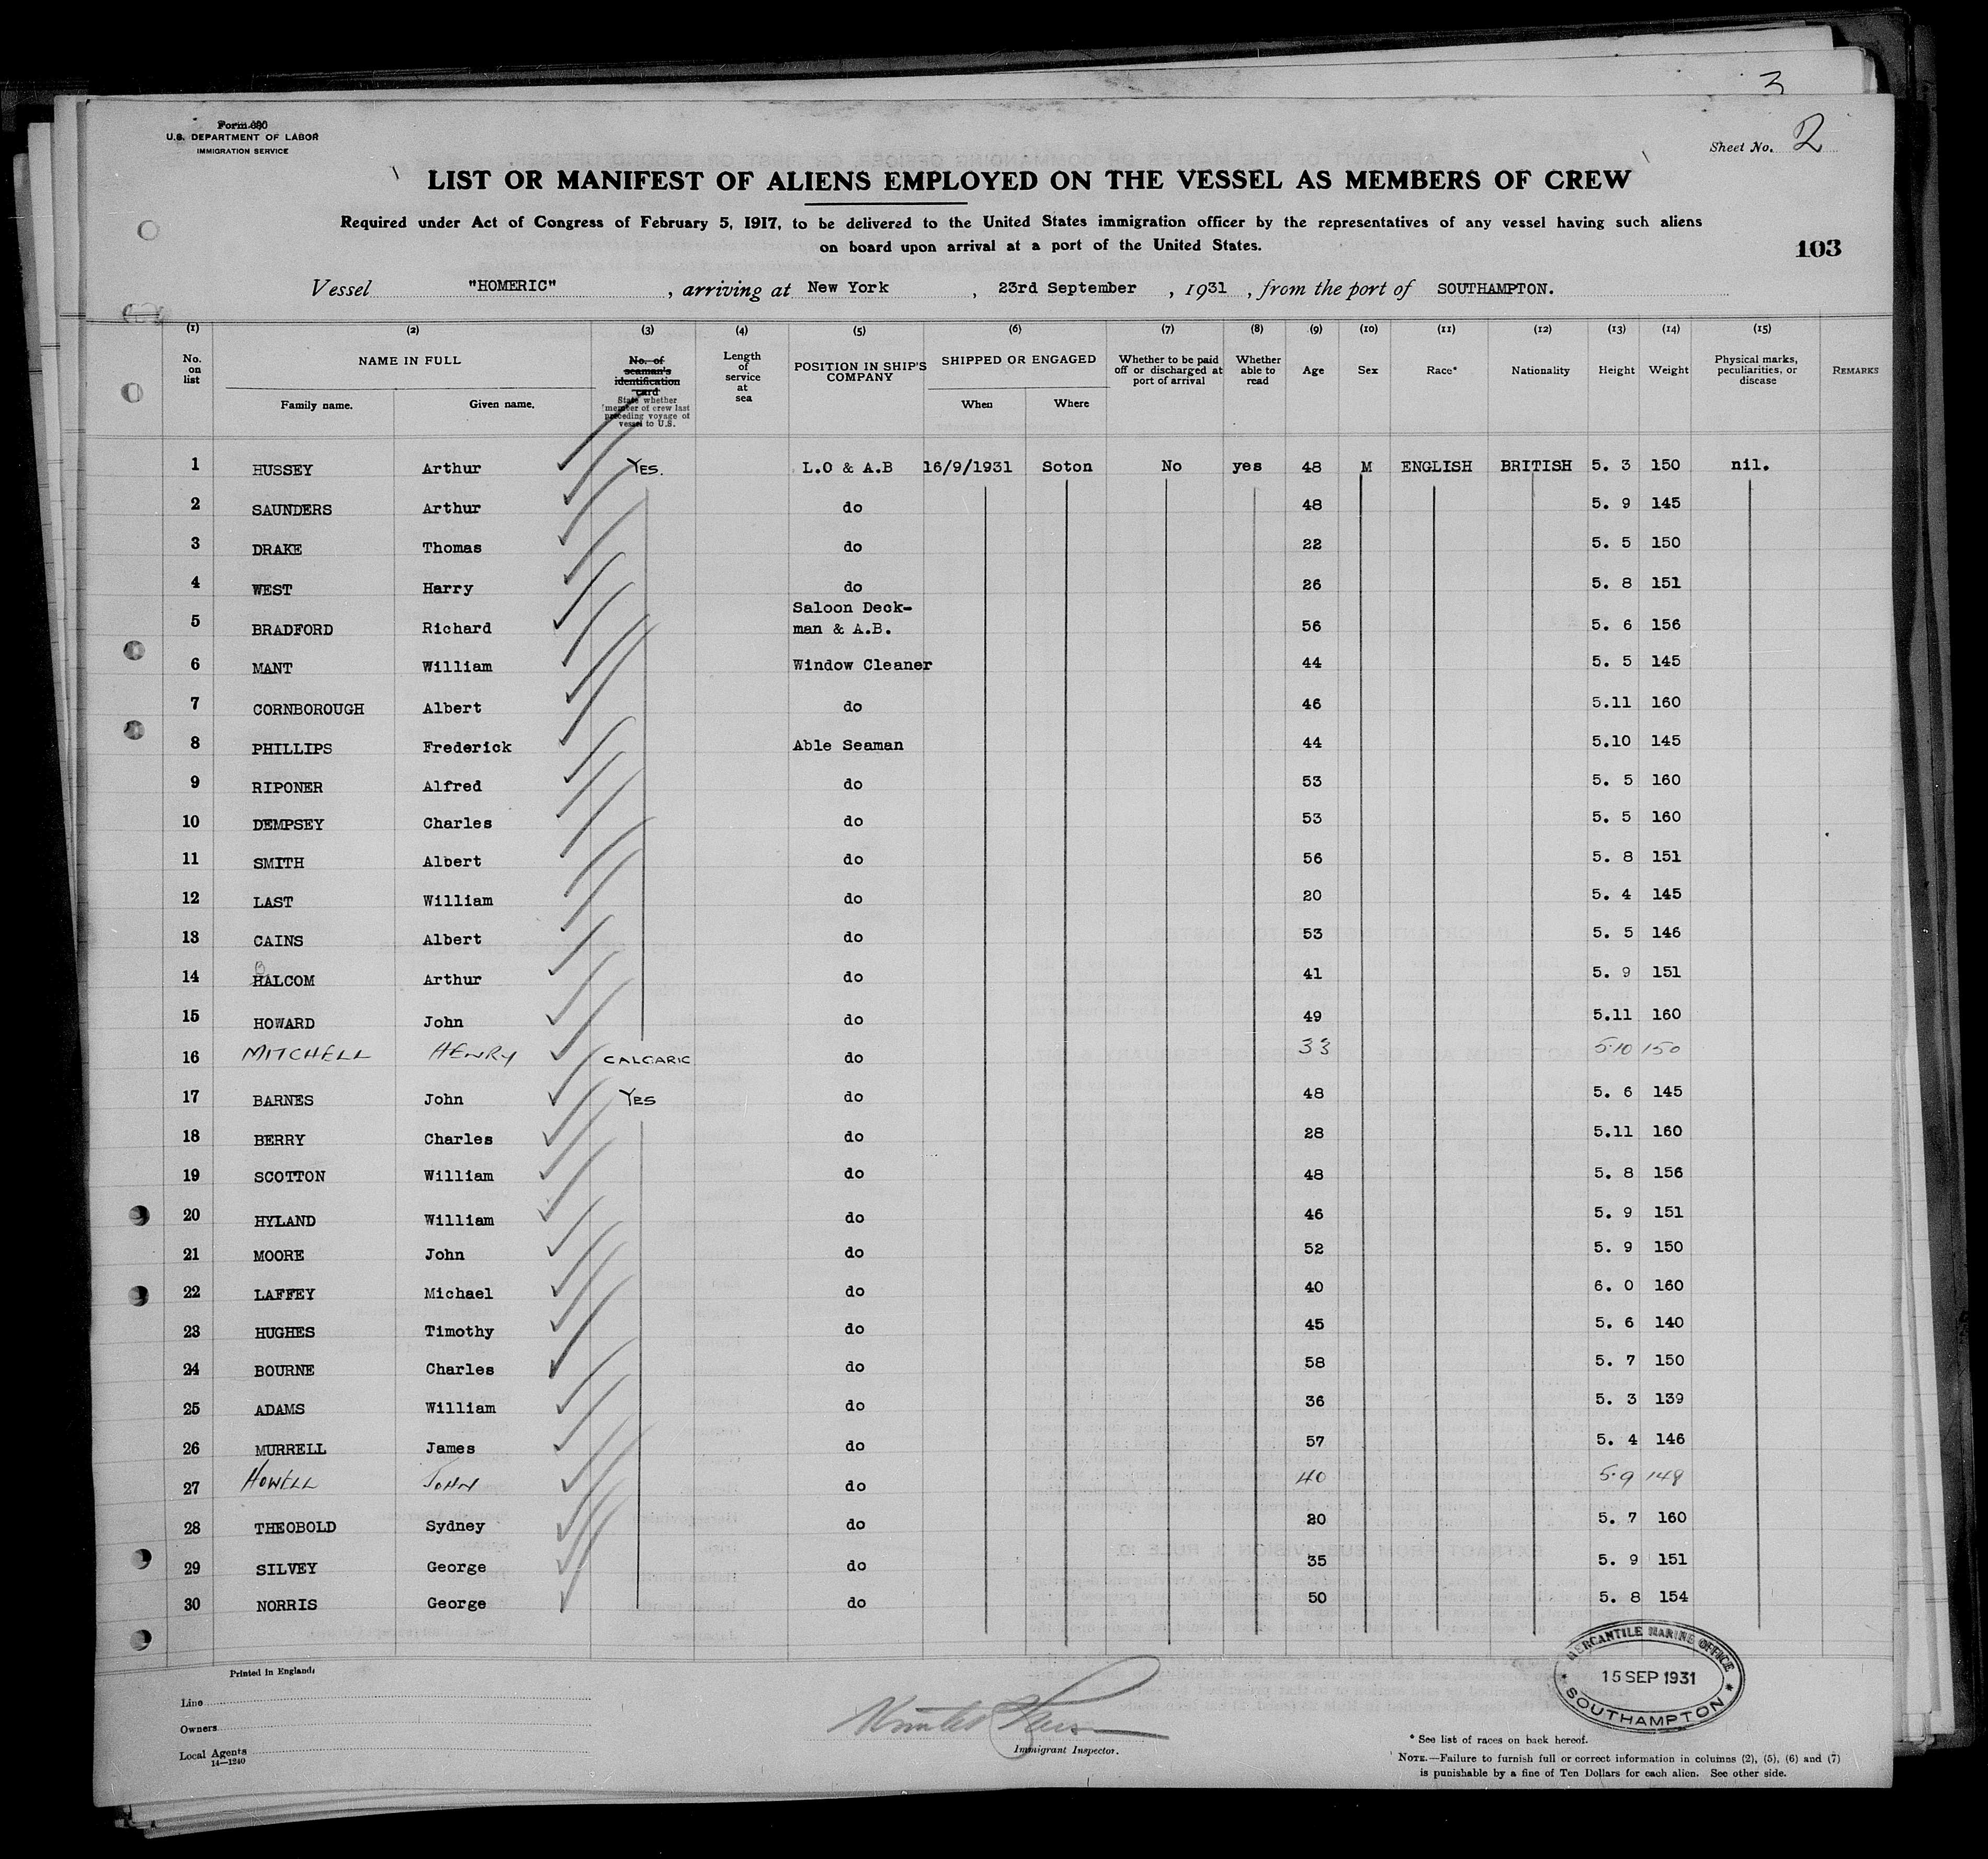 3
Form 680
U.S. DEPARTMENT OF LABOR
IMMIGRATION SERVICE
Sheet No. 2
LIST OR MANIFEST OF ALIENS EMPLOYED ON THE VESSEL AS MEMBERS OF CREW
Required under Act of Congress of February 5, 1917, to be delivered to the United States immigration officer by the representatives of any vessel having such aliens
on board upon arrival at a port of the United States.
103
Vessel "HOMERIC", arriving at New York, 23rd September, 1931, from the port of SOUTHAMPTON.
(1) (2) (3) (4) (5) (6) (7) (8) (9) (10) (11) (12) (13) (14) (15)
No. on list NAME IN FULL Family name. Given name. No. of seaman's identification card State whether member of crew last preceding voyage of vessel to U.S. Length of service at sea POSITION IN SHIP'S COMPANY SHIPPED OR ENGAGED When Where Whether to be paid off or discharged at port of arrival Whether able to read Age Sex Race* Nationality Height Weight Physical marks, peculiarities, or disease REMARKS
1 HUSSEY Arthur YES. L.O & A.B 16/9/1931 Soton No yes 48 M ENGLISH BRITISH 5. 3 150 nil.
2 SAUNDERS Arthur do 48 5. 9 145
3 DRAKE Thomas do 22 5. 5 150
4 WEST Harry do 26 5. 8 151
5 BRADFORD Richard Saloon Deck-man & A.B. 56 5. 6 156
6 MANT William Window Cleaner 44 5. 5 145
7 CORNBOROUGH Albert do 46 5.11 160
8 PHILLIPS Frederick Able Seaman 44 5.10 145
9 RIPONER Alfred do 53 5. 5 160
10 DEMPSEY Charles do 53 5. 5 160
11 SMITH Albert do 56 5. 8 151
12 LAST William do 20 5. 4 145
13 CAINS Albert do 53 5. 5 146
B
14 HALCOM Arthur do 41 5. 9 151
15 HOWARD John do 49 5.11 160
16 MITCHELL HENRY CALGARIC do 33 5.10 150
17 BARNES John YES do 48 5. 6 145
18 BERRY Charles do 28 5.11 160
19 SCOTTON William do 48 5. 8 156
20 HYLAND William do 46 5. 9 151
21 MOORE John do 52 5. 9 150
22 LAFFEY Michael do 40 6. 0 160
23 HUGHES Timothy do 45 5. 6 140
24 BOURNE Charles do 58 5. 7 150
25 ADAMS William do 36 5. 3 139
26 MURRELL James do 57 5. 4 146
27 HOWELL JOHN do 40 5.9 149
28 THEOBOLD Sydney do 20 5. 7 160
29 SILVEY George do 35 5. 9 151
30 NORRIS George do 50 5. 8 154
MERCANTILE MARINE OFFICE
15 SEP 1931
SOUTHAMPTON
Printed in England.
Line
Owners
Local Agents
14—1240
Immigrant Inspector.
* See list of races on back hereof.
NOTE.—Failure to furnish full or correct information in columns (2), (5), (6) and (7)
is punishable by a fine of Ten Dollars for each alien. See other side.